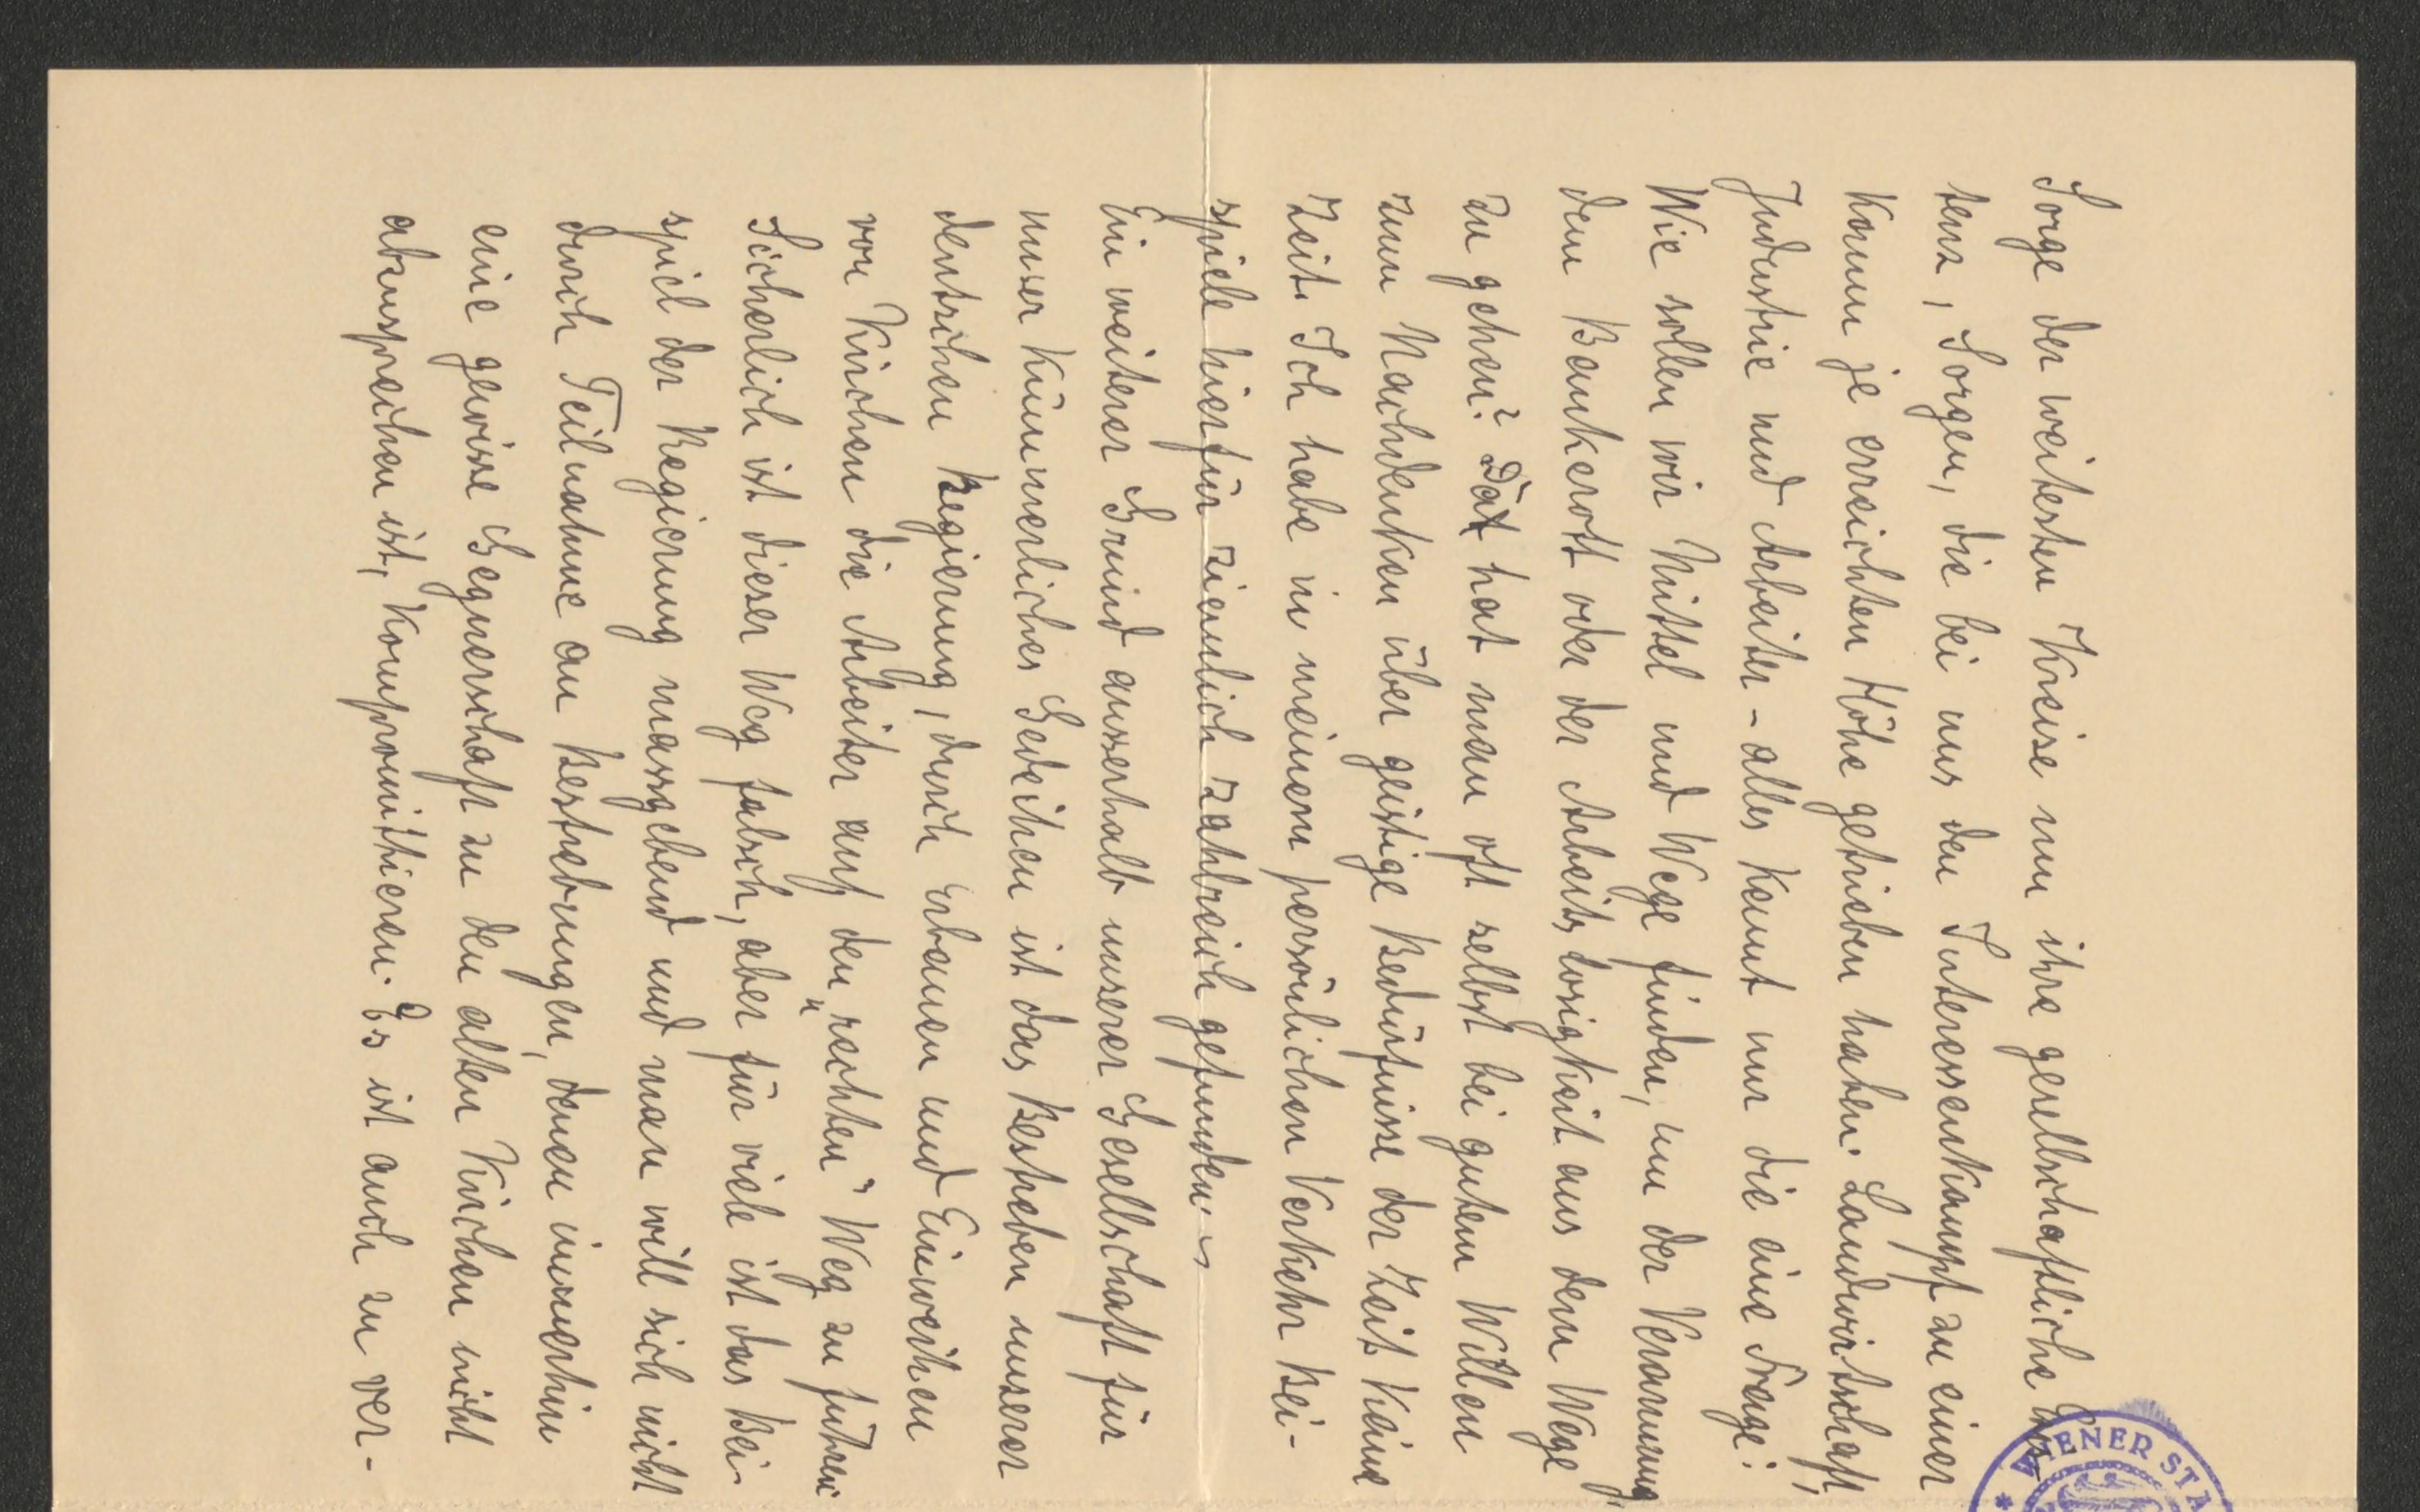 Sorge der weitesten Kreise nun ihre gesellschaftliche Exis-
tenz, Sorgen, die bei uns den Interessenkampf zu einer
kaum je erreichten Höhe getrieben haben. Landwirtschaft,
Industrie und Arbeiter – alles kennt nur die eine Frage:
Wie sollen wir Mittel und Wege finden, um der Verarmung,
dem Bankerott oder der Arbeitslosigkeit aus dem Wege
zu gehen? Da hat man oft selbst bei gutem Willen
zum Nachdenken über geistige Bedürfnisse der Zeit keine
Zeit. Ich habe in meinem persönlichen Verkehr Bei-
spiele hierfür ziemlich zahlreich gefunden. –
Ein weiterer Grund ausserhalb unserer Gesellschaft für
unser kümmerliches Gedeihen ist das Bestreben unserer
deutschen Regierung, durch Erbauen und Einweihen
von Kirchen die Arbeiter auf den „rechten" Weg zu führen.
Sicherlich ist dieser Weg falsch, aber für viele ist das Bei-
spiel der Regierung massgebend und man will sich nicht
durch Teilnahme an Bestrebungen, denen immerhin
eine gewisse Gegnerschaft zu den alten Kirchen nicht
abzusprechen ist, kompromittieren. Es ist auch zu ver-
WIENER STA